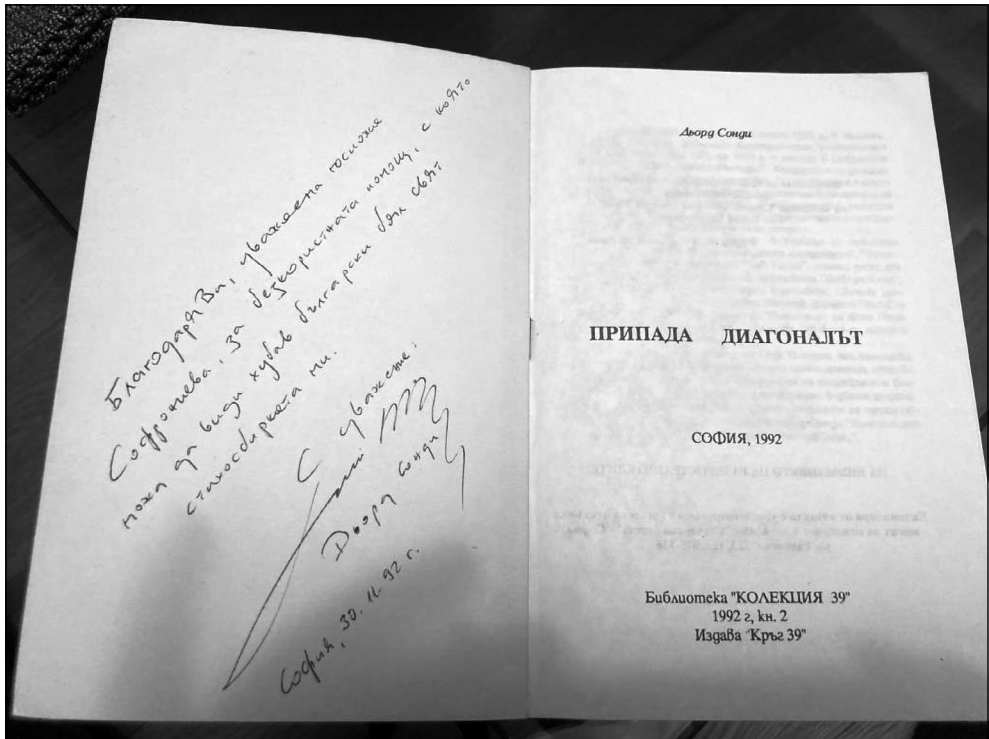 Благодаря Ви, уважаема госпожо
Софрониева, за безкористната помощ, с която
можа да види хубав български бял свят
стихосбирката ми.
С уважение:
Дьорд Сонди
София, 30. 11. 92 г.
Дьорд Сонди
ПРИПАДА ДИАГОНАЛЪТ
СОФИЯ, 1992
Библиотека "КОЛЕКЦИЯ 39"
1992 г, кн. 2
Издава "Кръг 39"